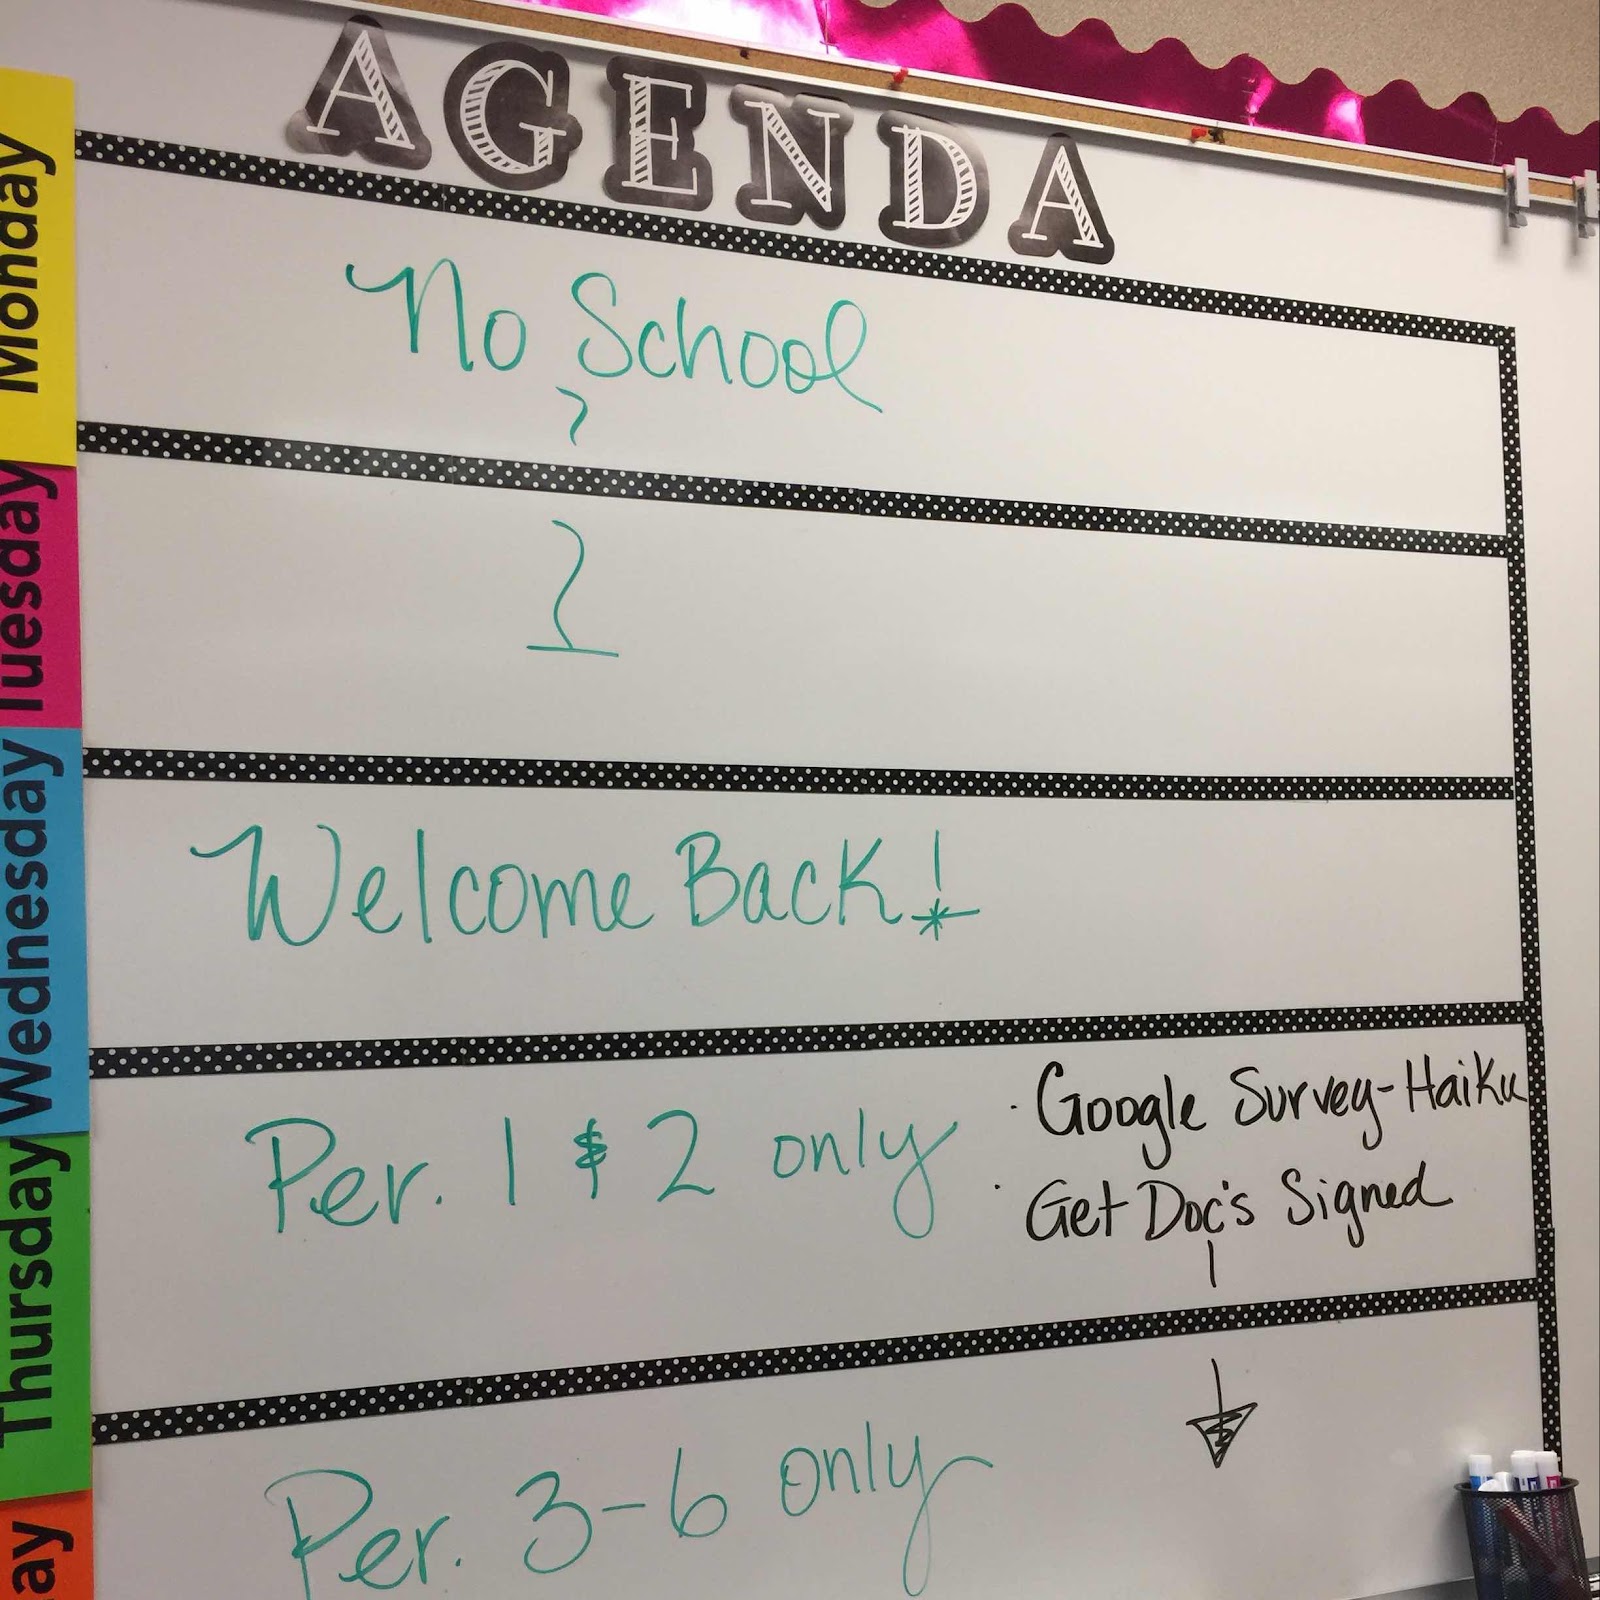 AGENDA
Monday
No School
Tuesday
Wednesday
Welcome Back!
Thursday
Per. 1 & 2 only
· Google Survey-Haiku
· Get Doc's Signed
ay
Per. 3-6 only